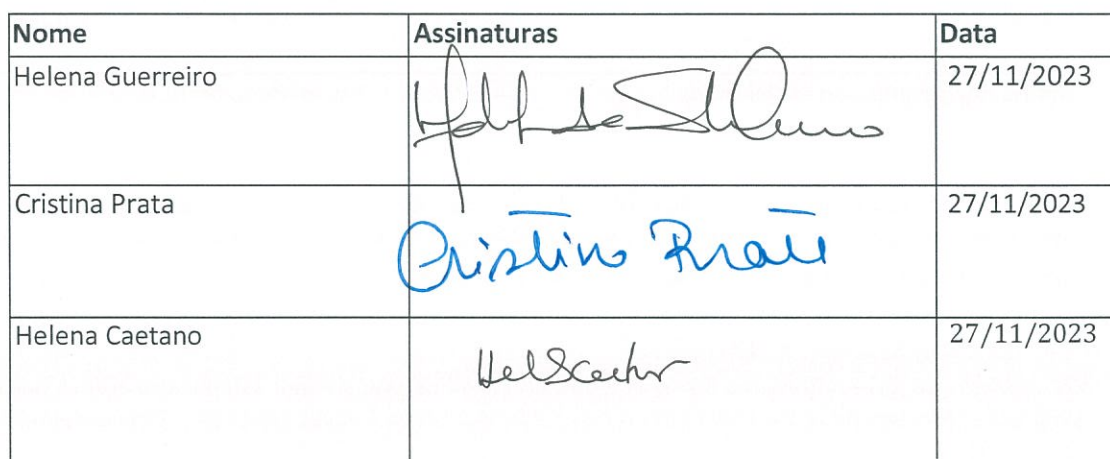 Nome Assinaturas Data
Helena Guerreiro 27/11/2023
Cristina Prata Cristina Prata 27/11/2023
Helena Caetano 27/11/2023